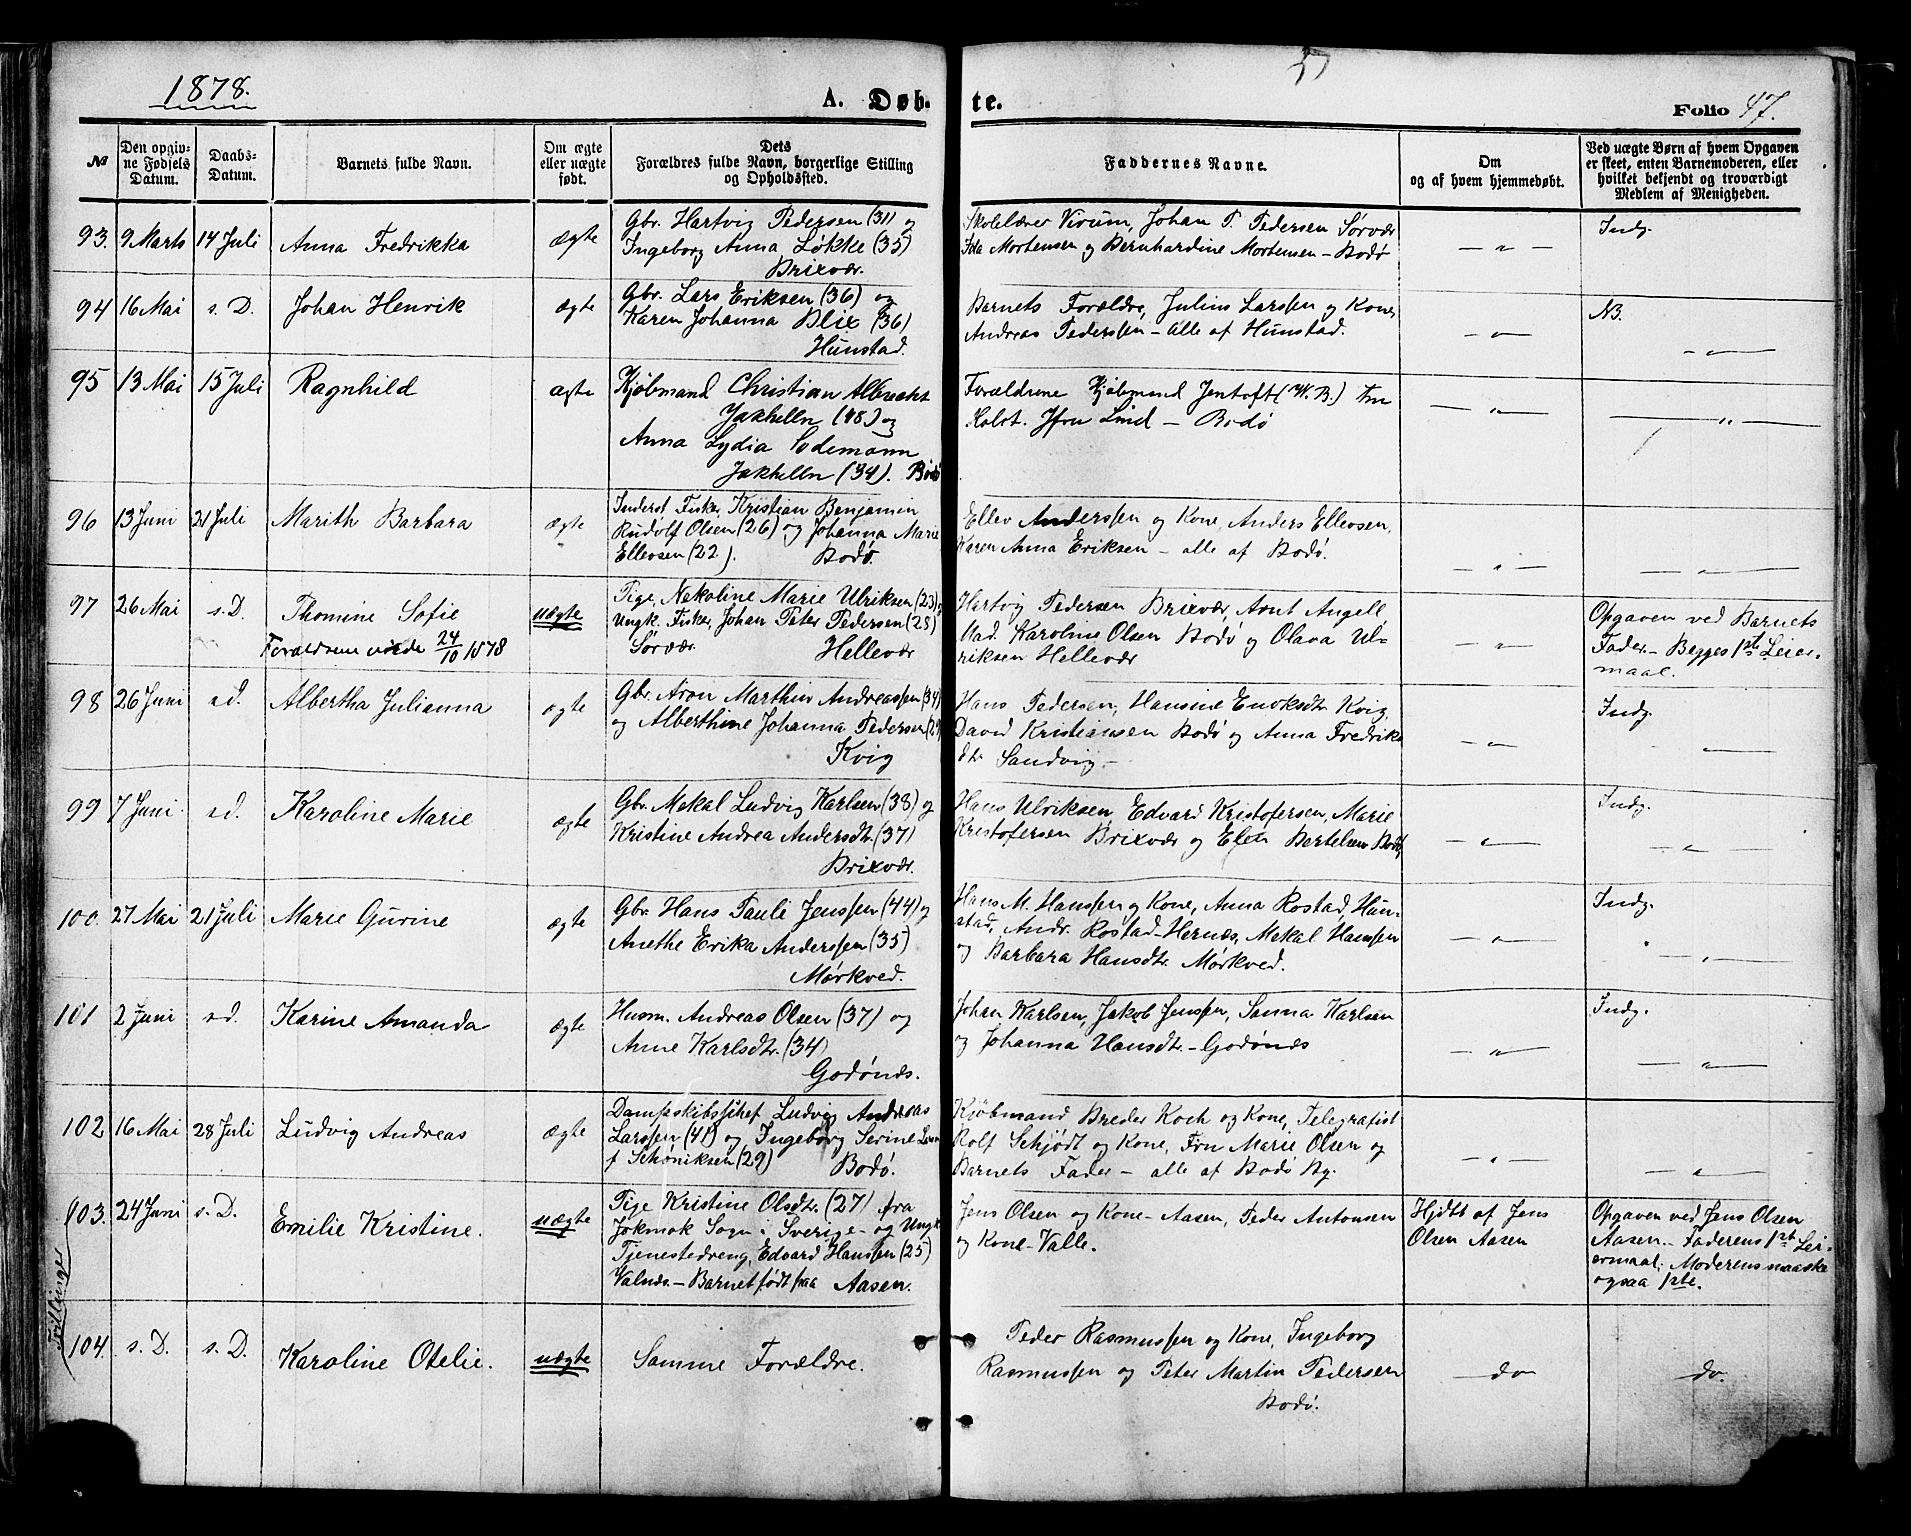 1878.
A. Døb-
te.
57
Folio 47.
№
Den opgiv-
ne Fødsels
Datum.
Daabs-
Datum.
Barnets fulde Navn.
Om ægte
eller uægte
født.
Dets
Forældres fulde Navn, borgerlige Stilling
og Opholdsted.
Faddernes Navne.
Om
og af hvem hjemmedøbt.
Ved uægte Børn af hvem Opgaven
er skeet, enten Barnemoderen, eller
hvilket bekjendt og troværdigt
Medlem af Menigheden.
93. 9 Marts 14 Juli Anna Fredrikka ægte
Gbr. Hartvig Pedersen (31) og
Ingeborg Anna Løkke (35)
Brixvær.
Skolelærer Virum, Johan P. Pedersen Sørvær
Ida Mortensen og Bernhardine Mortensen - Bodø
— " —
Indg.
94 16 Mai s. D. Johan Henrik ægte
Gbr. Lars Eriksen (36) og
Karen Johanna Blix (36)
Hunstad.
Barnets Forældre, Julius Larssen og Kone,
Andreas Pederssen - alle af Hunstad.
— " —
NB.
— " —
95 13 Mai 15 Juli Ragnhild ægte
Kjøbmand Christian Albrecht
Jakhelln (48) og
Anna Lydia Sodemann
Jakhelln (34). Bodø
Forældrene Kjøbmand Jentoft (W. B.) Fru
Holst. Jfru Lind - Bodø
— " —
— " —
96 13 Juni 21 Juli Marith Barbara ægte
Inderst Fisker, Kristian Benjamin
Rudolf Olsen (26) og Johanna Marie
Ellevsen (22). Bodø.
Ellev Anderssen og Kone, Anders Ellevsen,
Karen Anna Eriksen - alle af Bodø.
— " —
— " —
97 26 Mai s. D. Thomine Sofie uægte
Forældrene viede 24/10 1878
Pige, Nekoline Marie Ulriksen (23) og
Ungk. Fisker, Johan Peter Pedersen (28)
Sørvær. Hellevær
Hartvig Pedersen Brixvær, Arnt Angell
Mad. Karoline Olsen Bodø og Olava Ul-
riksen Hellevær
— " —
Opgaven ved Barnets
Fader - Begges 1ste Leier-
maal.
98 26 Juni s.d. Albertha Julianna ægte
Gbr. Aron Marthin Andreassen (34)
og Alberthine Johanna Pedersen (29)
Kvig
Hans Pedersen, Hansine Enoksdtr. Kvig,
David Kristiansen Bodø og Anna Fredriks
dtr. Sandvig -
— " —
Indg.
— " —
99 7 Juni s.d. Karoline Marie ægte
Gbr. Mekal Ludvig Karlsen (38) og
Kristine Andrea Andersdtr. (37)
Brixvær.
Hans Ulriksen, Edvard Kristofersen, Marie
Kristofersen Brixvær og Elen Bertelsen Bodø
— " —
Indg.
— " —
100. 27 Mai 21 Juli Marie Gurine ægte
Gbr. Hans Pauli Jenssen (44) og
Anethe Erika Anderssen (35)
Mørkved.
Hans M. Hanssen og Kone, Anna Rostad, Hun-
stad, Andr. Rostad - Hernæs, Mekal Hanssen
og Barbara Hansdtr. Mørkved.
— " —
Indg.
— " —
101 2 Juni s.d. Karine Amanda ægte
Husm. Andreas Olsen (37) og
Anne Karlsdtr. (34)
Godønæs.
Johan Karlsen, Jakob Jenssen, Sanna Karlsen
og Johanna Hansdtr. - Godønæs
— " —
Indg.
— " —
102 16 Mai 28 Juli Ludvig Andreas ægte
Dampskibschef Ludvig Andreas
Larssen (41) og Ingeborg Serine
f Schøniksen (29) Bodø.
Kjøbmand Breder Koch og Kone, Telegrafist
Rolf Schjødt og Kone, Fru Marie Olsen og
Barnets Fader - alle af Bodø By.
— " —
— " —
Tvillinger
103. 24 Juni s. D. Emilie Kristine. uægte
Pige Kristine Olsdtr. (27) fra
Jokmok Sogn i Sverige - og Ungk.
Tjenestedreng, Edvard Hanssen (25)
Valnæs. - Barnet født paa Aasen.
Jens Olsen og Kone - Aasen, Peder Antonsen
og Kone - Valle.
Hjdbt af Jens
Olsen Aasen
Opgaven ved Jens Olsen
Aasen - Faderens 1ste Lei-
ermaal; Moderens maaske
ogsaa 1ste.
104. s. D. s. D. Karoline Otelie. uægte
Samme Forældre.
Peder Rasmussen og Kone, Ingeborg
Rasmussen og Peter Martin Pedersen
Bodø.
— do —
— do. —